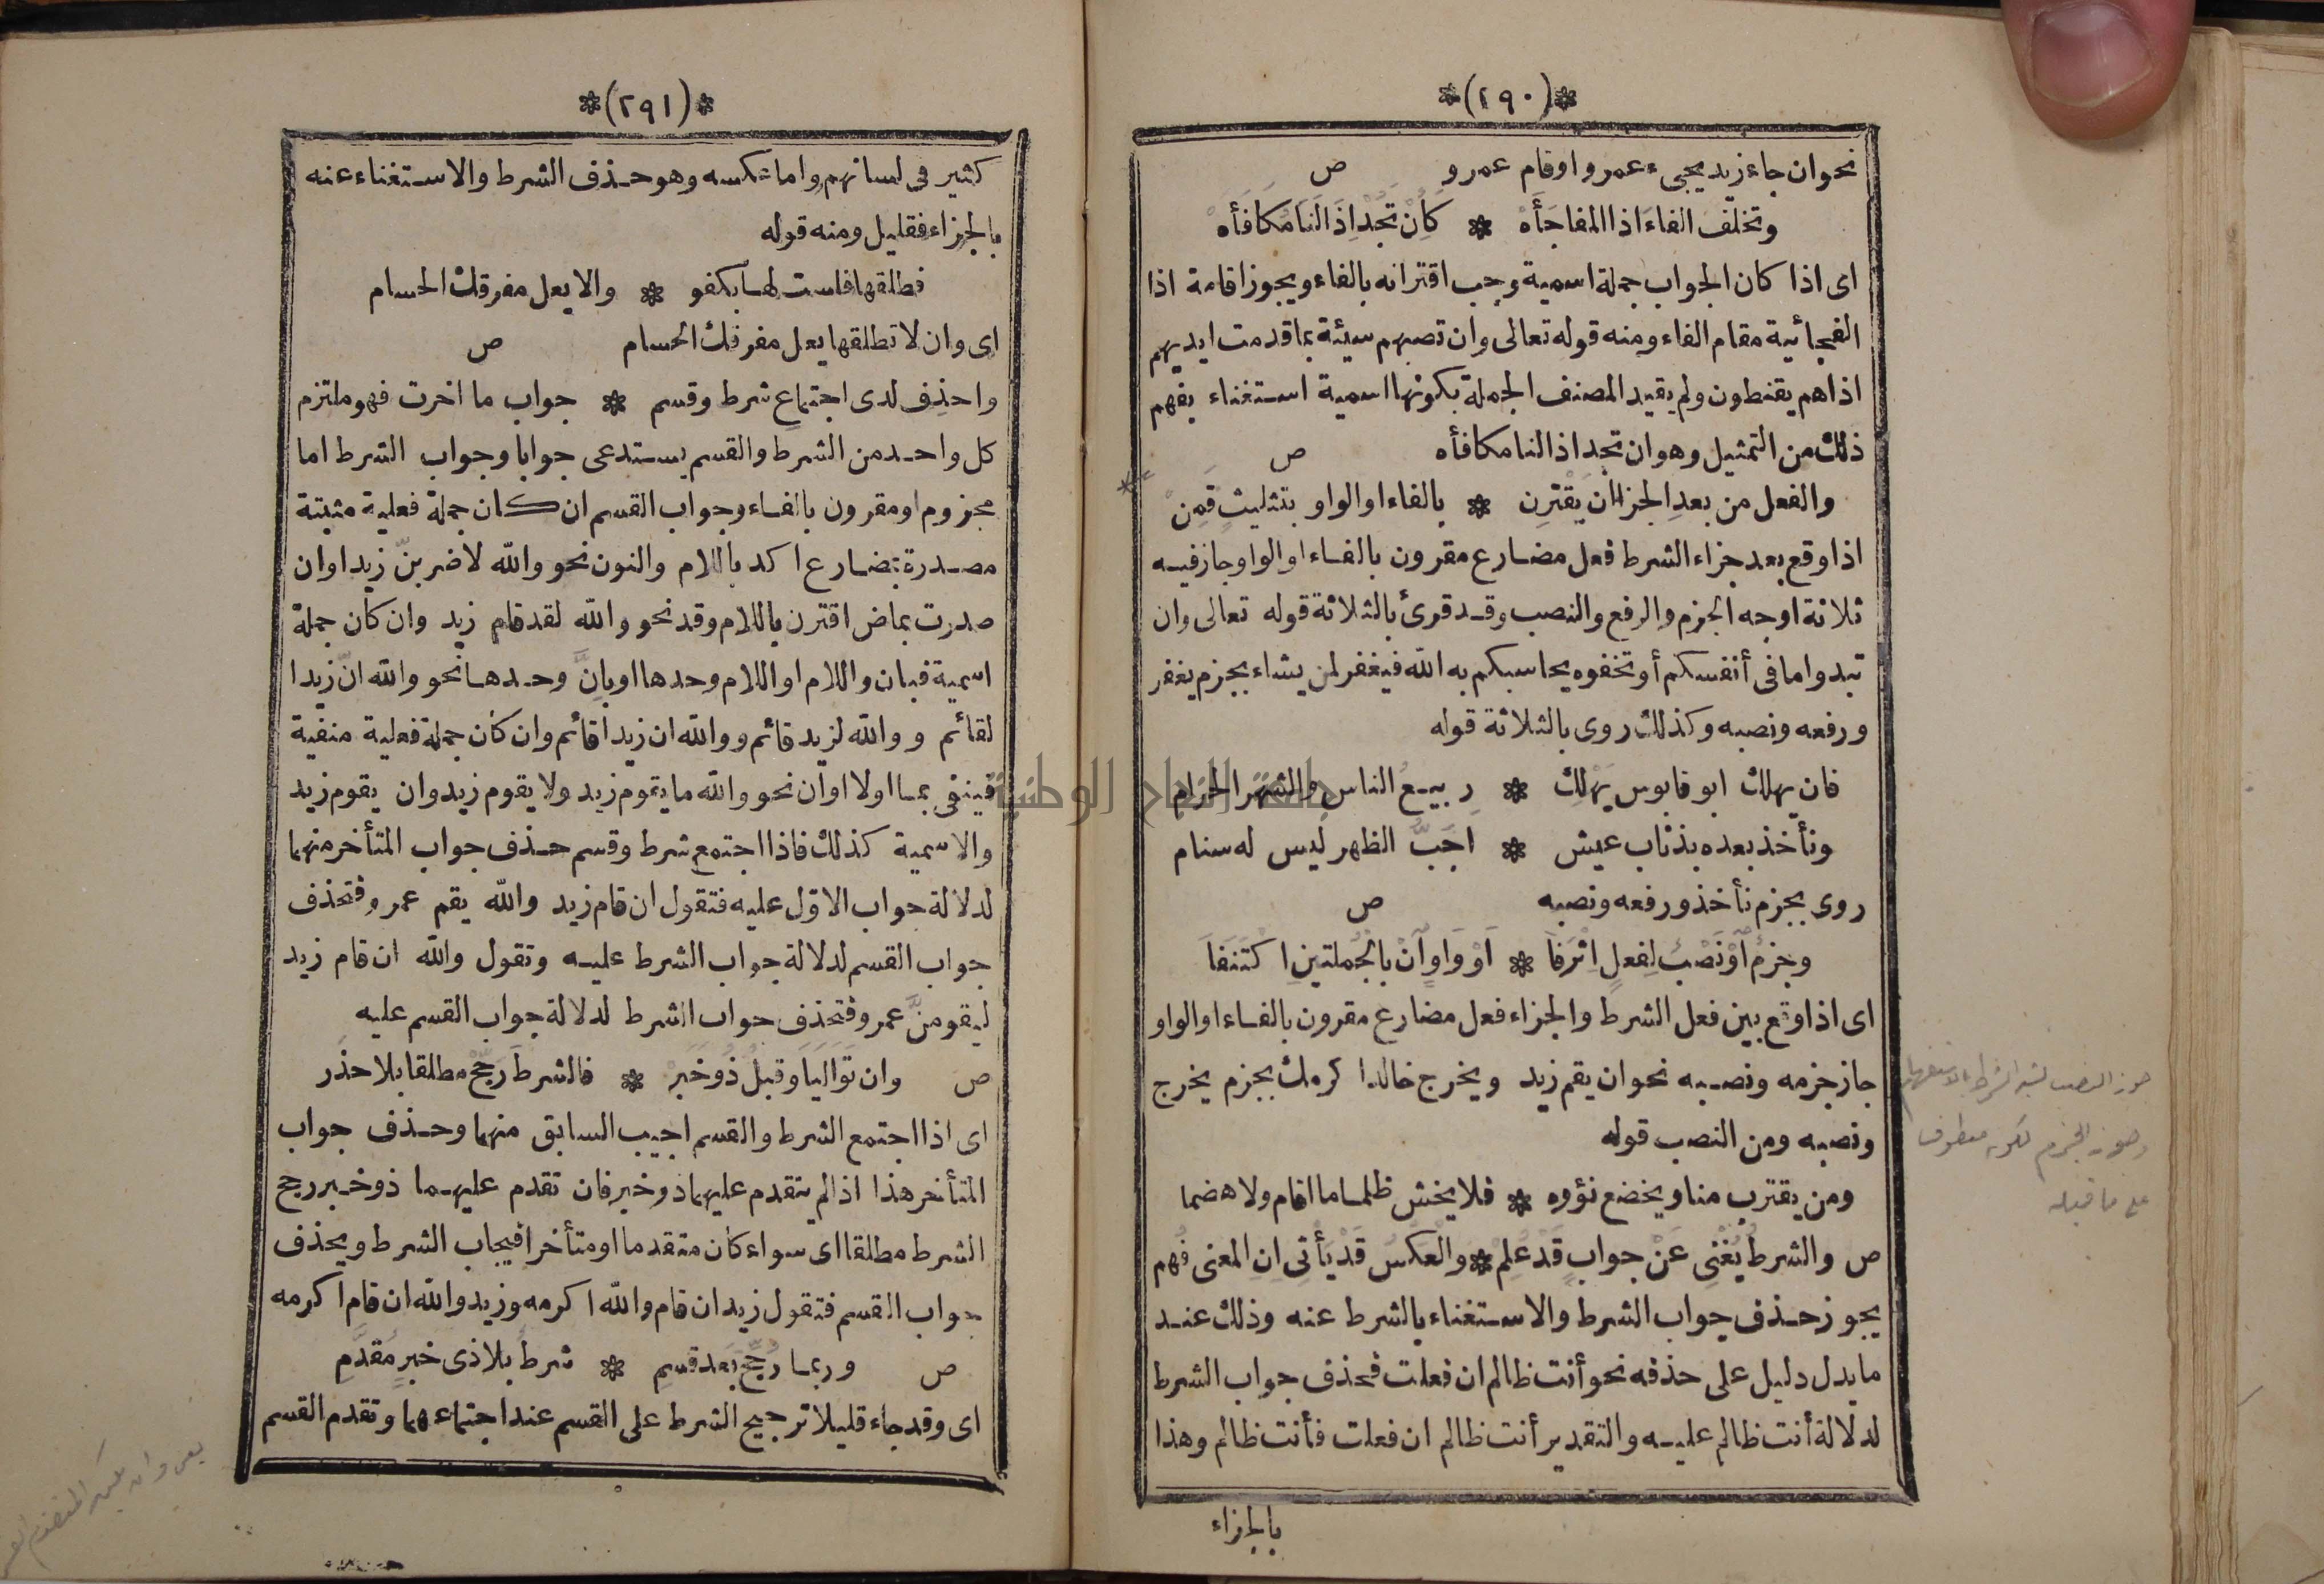 *(٢٩٠)*
نحو ان جاء زيد يجىء عمرو او قام عمرو ص
وتخلف الفاءَ اذا المفاجَأَهْ * كَاِنْ تَجُدْ اِذَا لَنَا مُكَافَأَهْ
اى اذا كان الجواب جملة اسمية وجب اقترانه بالفاء ويجوز اقامة اذا
الفجائية مقام الفاء ومنه قوله تعالى وان تصبهم سيئة بما قدمت ايديهم
اذا هم يقنطون ولم يقيد المصنف الجملة بكونها اسمية استغناء بفهم
ذلك من التمثيل وهو ان تجد اذا لنا مكافأه ص
والفعل من بعدِ الجزا اِن يَقْترِن * بالفا او الواو بتثليثٍ قَمِنْ
اذا وقع بعد جزاء الشرط فعل مضارع مقرون بالفاء او الواو جاز فيه
ثلاثة اوجه الجزم والرفع والنصب وقد قرئ بالثلاثة قوله تعالى وان
تبدوا ما فى أنفسكم أو تخفوه يحاسبكم به الله فيغفر لمن يشاء بجزم يغفر
ورفعه ونصبه وكذلك روى بالثلاثة قوله
فان يهلك ابو قابوس يَهْلِك * رِبيعُ الناس والشهر الحرام
ونأخذ بعده بذناب عيش * اجَبَّ الظهر ليس له سنام
روى بجزم نأخذ ورفعه ونصبه ص
وجزمٌ اَوْ نَصْبٌ لِفعلٍ اِثْرَفَا * اَوْ وَاوٍ اَنْ بالْجُملتينِ اكْتَنَفَا
اى اذا وقع بين فعل الشرط والجزاء فعل مضارع مقرون بالفاء او الواو
جاز جزمه ونصبه نحو ان يقم زيد ويخرج خالد اكرمك بجزم يخرج
ونصبه ومن النصب قوله
ومن يقترب منا ويخضع نؤوه * فلا يخش ظلما ما اقام ولا هضما
ص والشرط يُغْنِى عَنْ جوابٍ قَدْ عُلِمْ * والْعَكسُ قَدْ يَأْتِى اِنِ المعنى فُهِم
يجوز حذف جواب الشرط والاستغناء بالشرط عنه وذلك عند
ما يدل دليل على حذفه نحو أنت ظالم ان فعلت فحذف جواب الشرط
لدلالة أنت ظالم عليه والتقدير أنت ظالم ان فعلت فأنت ظالم وهذا
بالجزاء
*(٢٩١)*
كثير فى لسانهم واما عكسه وهو حذف الشرط والاستغناء عنه
بالجزاء فقليل ومنه قوله
فطلقها فلست لها بكفو * والا يعل مفرقك الحسام
اى وان لا تطلقها يعل مفرقك الحسام ص
واحذِف لدى اجتماعِ شرط وقسم * جواب ما اخرت فهو ملتزم
كل واحد من الشرط والقسم يستدعى جوابا وجواب الشرط اما
مجزوم او مقرون بالفاء وجواب القسم ان كان جملة فعلية مثبتة
مصدرة بمضارع اكد باللام والنون نحو والله لاضربنّ زيدا وان
صدرت بماض اقترن باللام وقد نحو والله لقد قام زيد وان كان جملة
اسمية فبان واللام او اللام وحدها او بانَّ وحدها نحو والله انّ زيدا
لقائم و والله لزيد قائم و والله ان زيدا قائم وان كان جملة فعلية منفية
فينفى بما او لا او ان نحو والله ما يقوم زيد ولا يقوم زيد وان يقوم زيد
والاسمية كذلك فاذا اجتمع شرط وقسم حذف جواب المتأخر منهما
لدلالة جواب الاوّل عليه فتقول ان قام زيد والله يقم عمرو فتحذف
جواب القسم لدلالة جواب الشرط عليه وتقول والله ان قام زيد
ليقومنَّ عمرو فتحذف جواب الشرط لدلالة جواب القسم عليه
ص وان تَوَالَيَا وقبلُ ذُو خَبَرْ * فالشرطَ رَجِّحْ مطلقا بلا حذَر
اى اذا اجتمع الشرط والقسم اجيب السابق منهما وحذف جواب
المتأخر هذا اذا لم يتقدم عليهما ذو خبر فان تقدم عليهما ذو خبر رجح
الشرط مطلقا اى سواء كان متقدما او متأخرا فيجاب الشرط ويحذف
جواب القسم فتقول زيد ان قام والله اكرمه وزيد والله ان قام اكرمه
ص وربما رُجِّحَ بَعد قسمِ * شرطٌ بلا ذى خبرٍ مُقدَّمِ
اى وقد جاء قليلا ترجيح الشرط على القسم عند اجتماعهما وتقدم القسم
جامعة النجاح الوطنية
على ما قبله